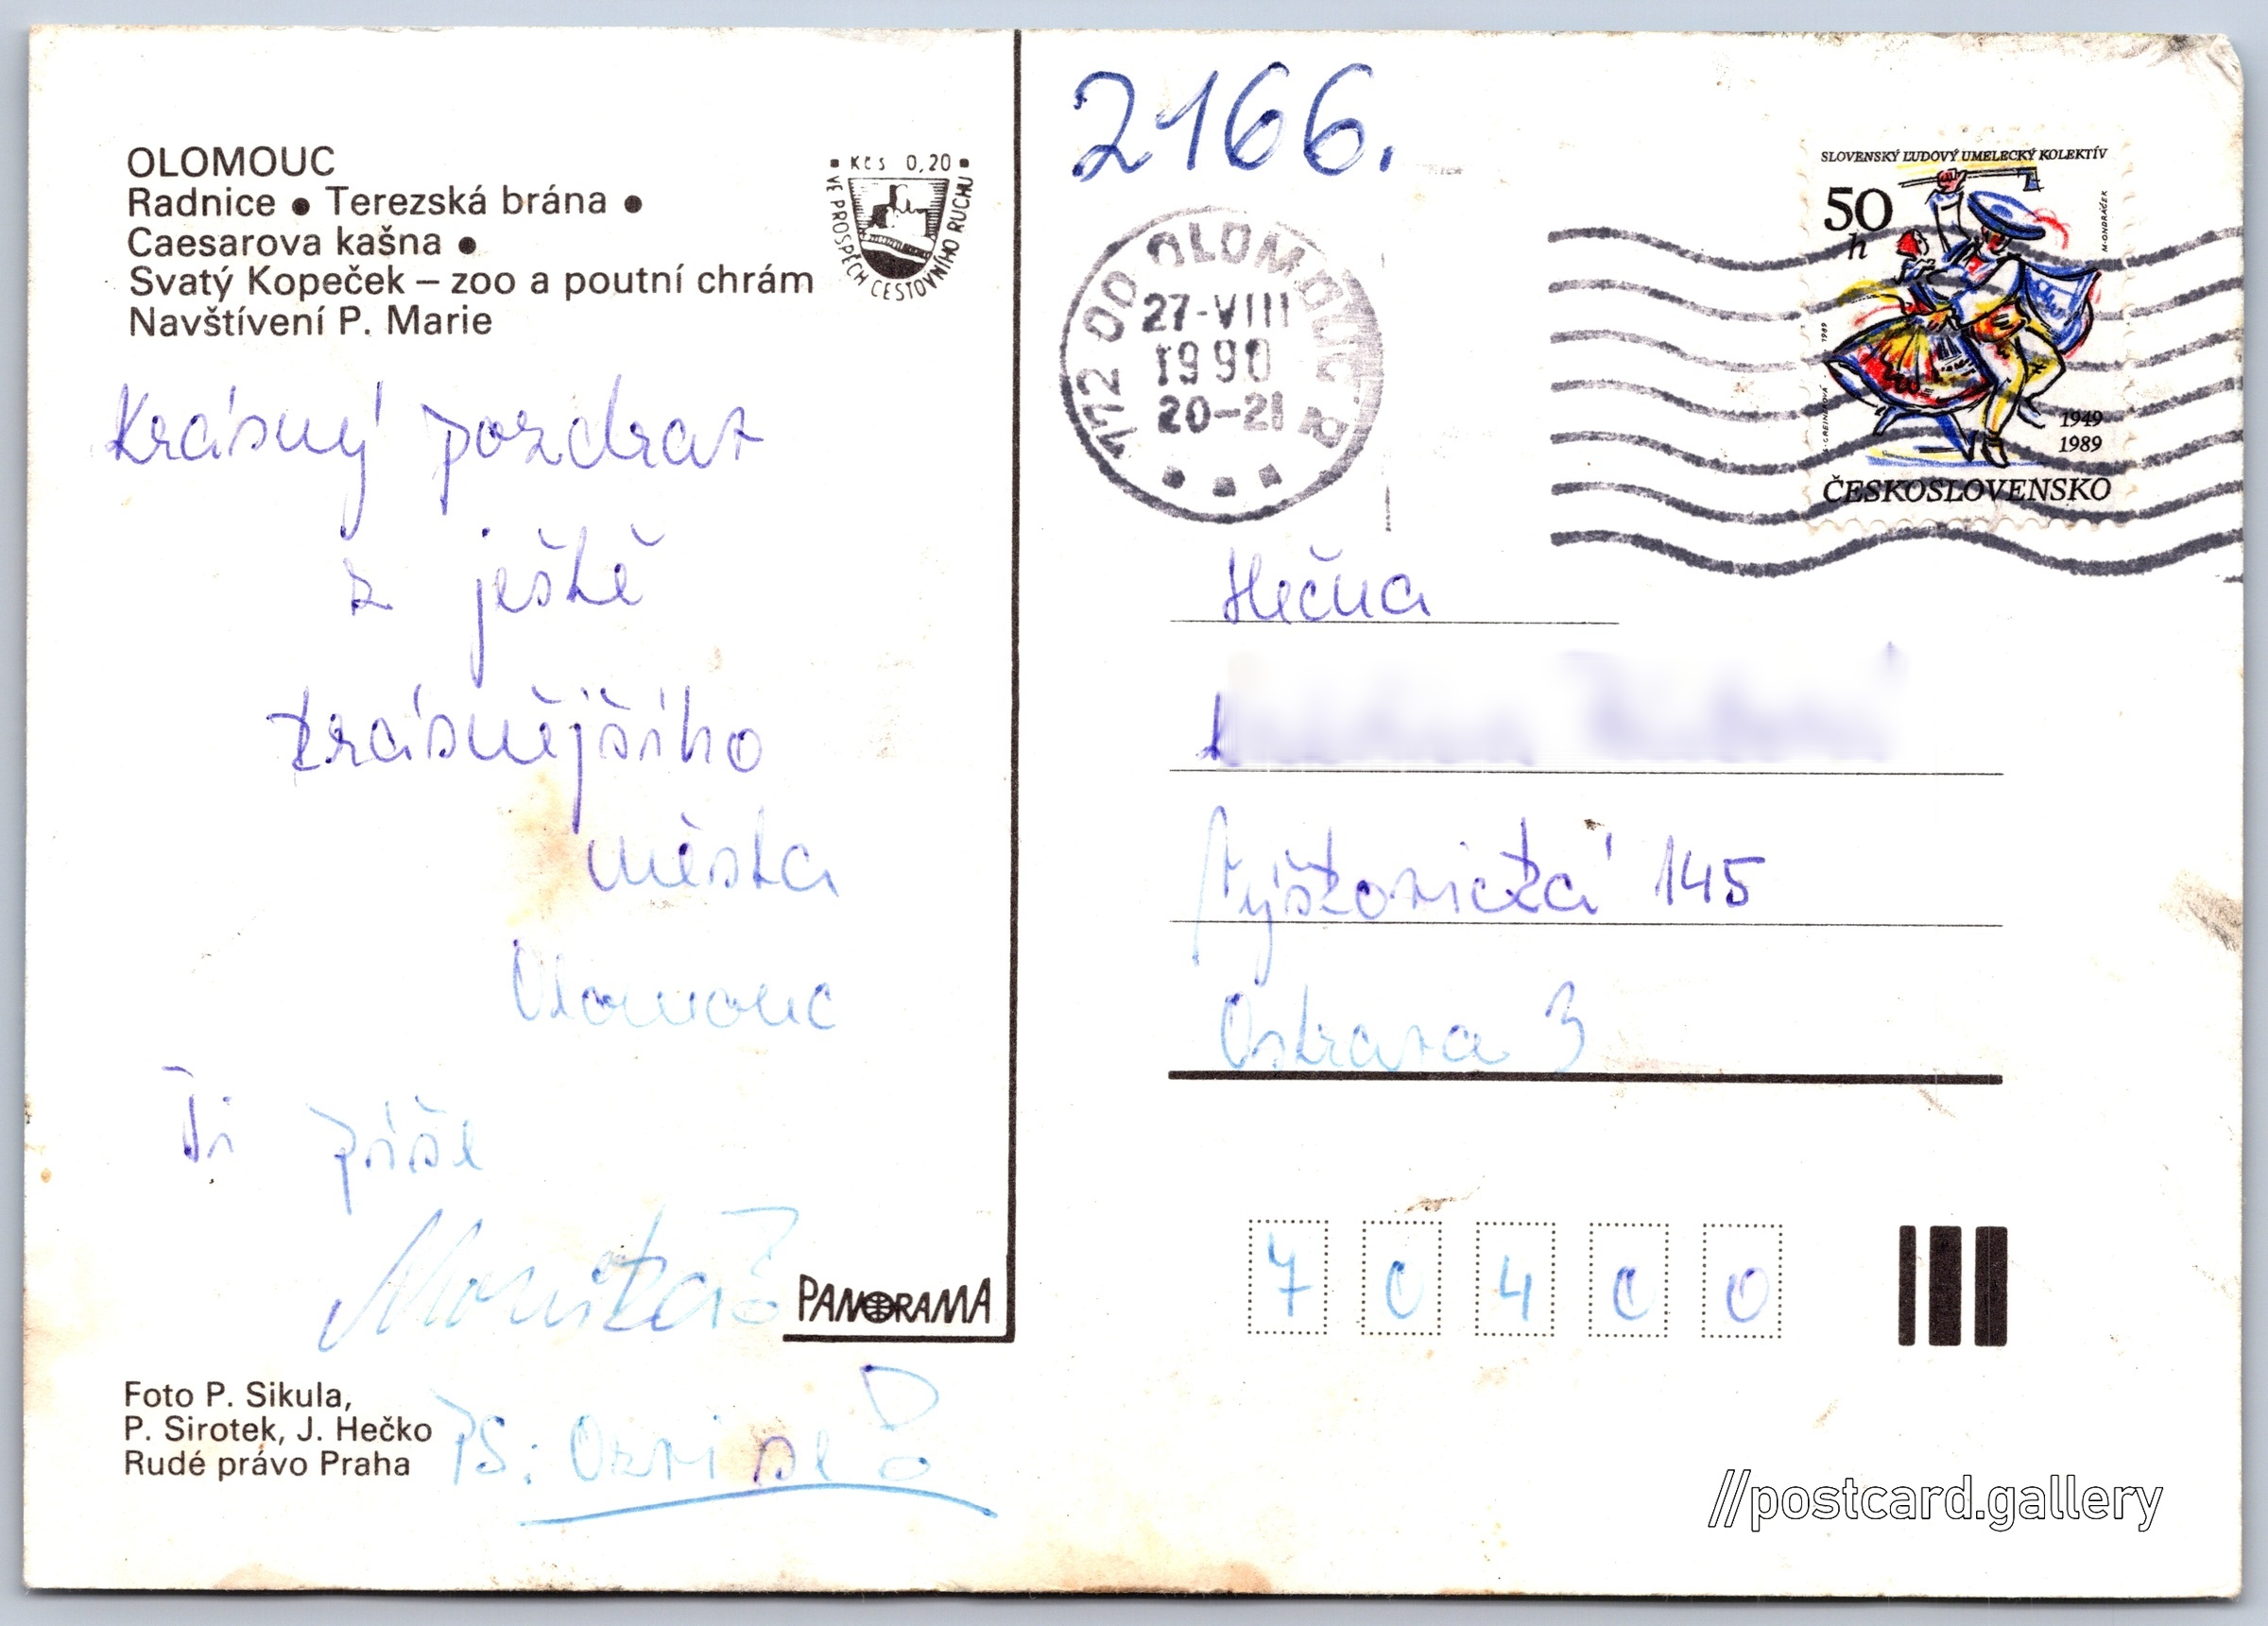 OLOMOUC
Radnice ● Terezská brána ●
Caesarova kašna ●
Svatý Kopeček – zoo a poutní chrám
Navštívení P. Marie
• Kčs 0,20 •
VE PROSPĚCH CESTOVNÍHO RUCHU
Krásný pozdrav
z ještě
krásnějšího
města
Olomouc
Ti píše
Monika
PANORAMA
Foto P. Sikula,
P. Sirotek, J. Hečko
Rudé právo Praha
PS: Ozvi se
2166.
772 00 OLOMOUC 2
27-VIII
1990
20-21
SLOVENSKÝ ĽUDOVÝ UMELECKÝ KOLEKTÍV
50
h
M. ONDRÁČEK
1989
1949
1989
ČESKOSLOVENSKO
Slečna
Výškovická 145
Ostrava 3
7 0 4 0 0
//postcard.gallery